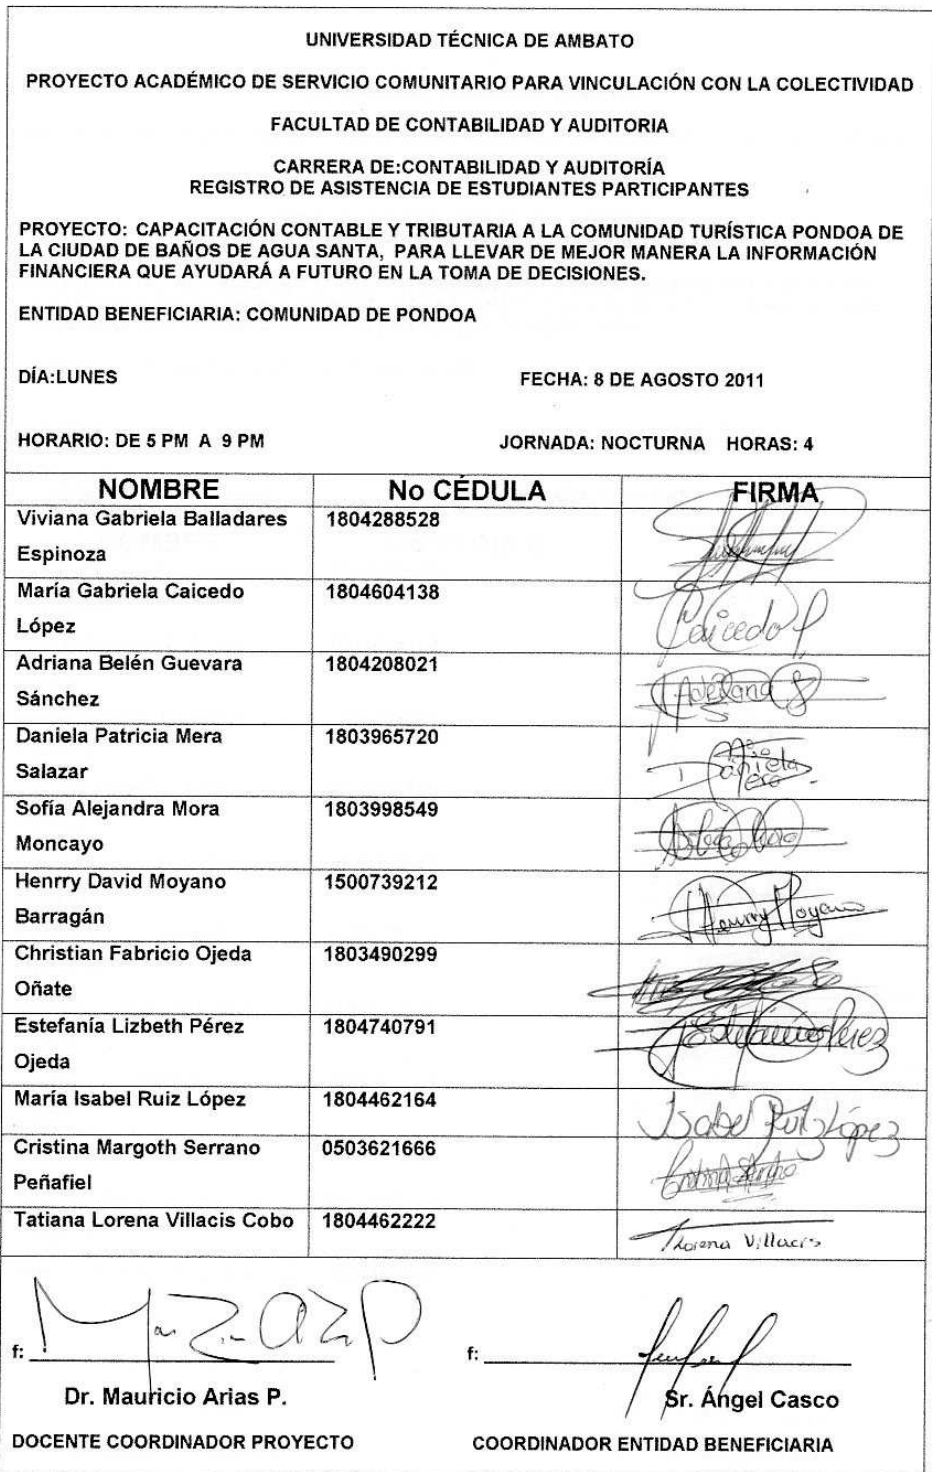 UNIVERSIDAD TÉCNICA DE AMBATO
PROYECTO ACADÉMICO DE SERVICIO COMUNITARIO PARA VINCULACIÓN CON LA COLECTIVIDAD
FACULTAD DE CONTABILIDAD Y AUDITORIA
CARRERA DE:CONTABILIDAD Y AUDITORÍA
REGISTRO DE ASISTENCIA DE ESTUDIANTES PARTICIPANTES
PROYECTO: CAPACITACIÓN CONTABLE Y TRIBUTARIA A LA COMUNIDAD TURÍSTICA PONDOA DE
LA CIUDAD DE BAÑOS DE AGUA SANTA, PARA LLEVAR DE MEJOR MANERA LA INFORMACIÓN
FINANCIERA QUE AYUDARÁ A FUTURO EN LA TOMA DE DECISIONES.
ENTIDAD BENEFICIARIA: COMUNIDAD DE PONDOA
DÍA:LUNES FECHA: 8 DE AGOSTO 2011
HORARIO: DE 5 PM A 9 PM JORNADA: NOCTURNA HORAS: 4
NOMBRE No CÉDULA FIRMA
Viviana Gabriela Balladares 1804288528
Espinoza
María Gabriela Caicedo 1804604138
López Caicedo
Adriana Belén Guevara 1804208021
Sánchez Adriana
Daniela Patricia Mera 1803965720
Salazar Daniela
Sofía Alejandra Mora 1803998549
Moncayo
Henrry David Moyano 1500739212
Barragán Henrry Moyano
Christian Fabricio Ojeda 1803490299
Oñate
Estefanía Lizbeth Pérez 1804740791
Ojeda Estefanía Pérez
María Isabel Ruiz López 1804462164 Isabel Ruiz López
Cristina Margoth Serrano 0503621666
Peñafiel
Tatiana Lorena Villacis Cobo 1804462222 Lorena Villacis
f: f:
Dr. Mauricio Arias P. Sr. Ángel Casco
DOCENTE COORDINADOR PROYECTO COORDINADOR ENTIDAD BENEFICIARIA